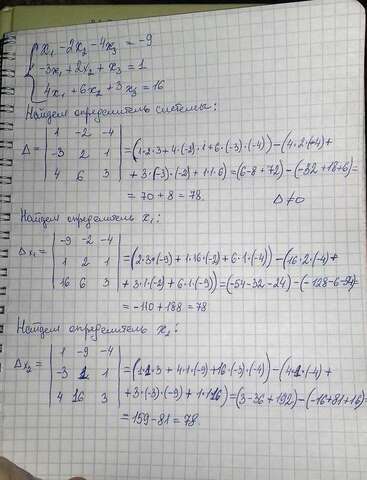 x₁ - 2x₂ - 4x₃ = -9
-3x₁ + 2x₂ + x₃ = 1
4x₁ + 6x₂ + 3x₃ = 16
Найдем определитель системы:
Δ = | 1 -2 -4 |
| -3 2 1 | = (1·2·3+4·(-2)·1+6·(-3)·(-4)) - (4·2·(-4)+
| 4 6 3 | + 3·(-3)·(-2)+1·1·6) = (6-8+72) - (-32+18+6) =
= 70 + 8 = 78. Δ ≠ 0
Найдем определитель x₁:
Δx₁ = | -9 -2 -4 |
| 1 2 1 | = (2·3·(-9)+1·16·(-2)+6·1·(-4)) - (16·2·(-4)+
| 16 6 3 | + 3·1·(-2)+6·1·(-9)) = (-54-32-24) - (-128-6-54) =
= -110 + 188 = 78
Найдем определитель x₂:
Δx₂ = | 1 -9 -4 |
| -3 1 1 | = (1·1·3+4·1·(-9)+16·(-3)·(-4)) - (4·1·(-4)+
| 4 16 3 | + 3·(-3)·(-9)+1·1·16) = (3-36+192) - (-16+81+16) =
= 159 - 81 = 78.